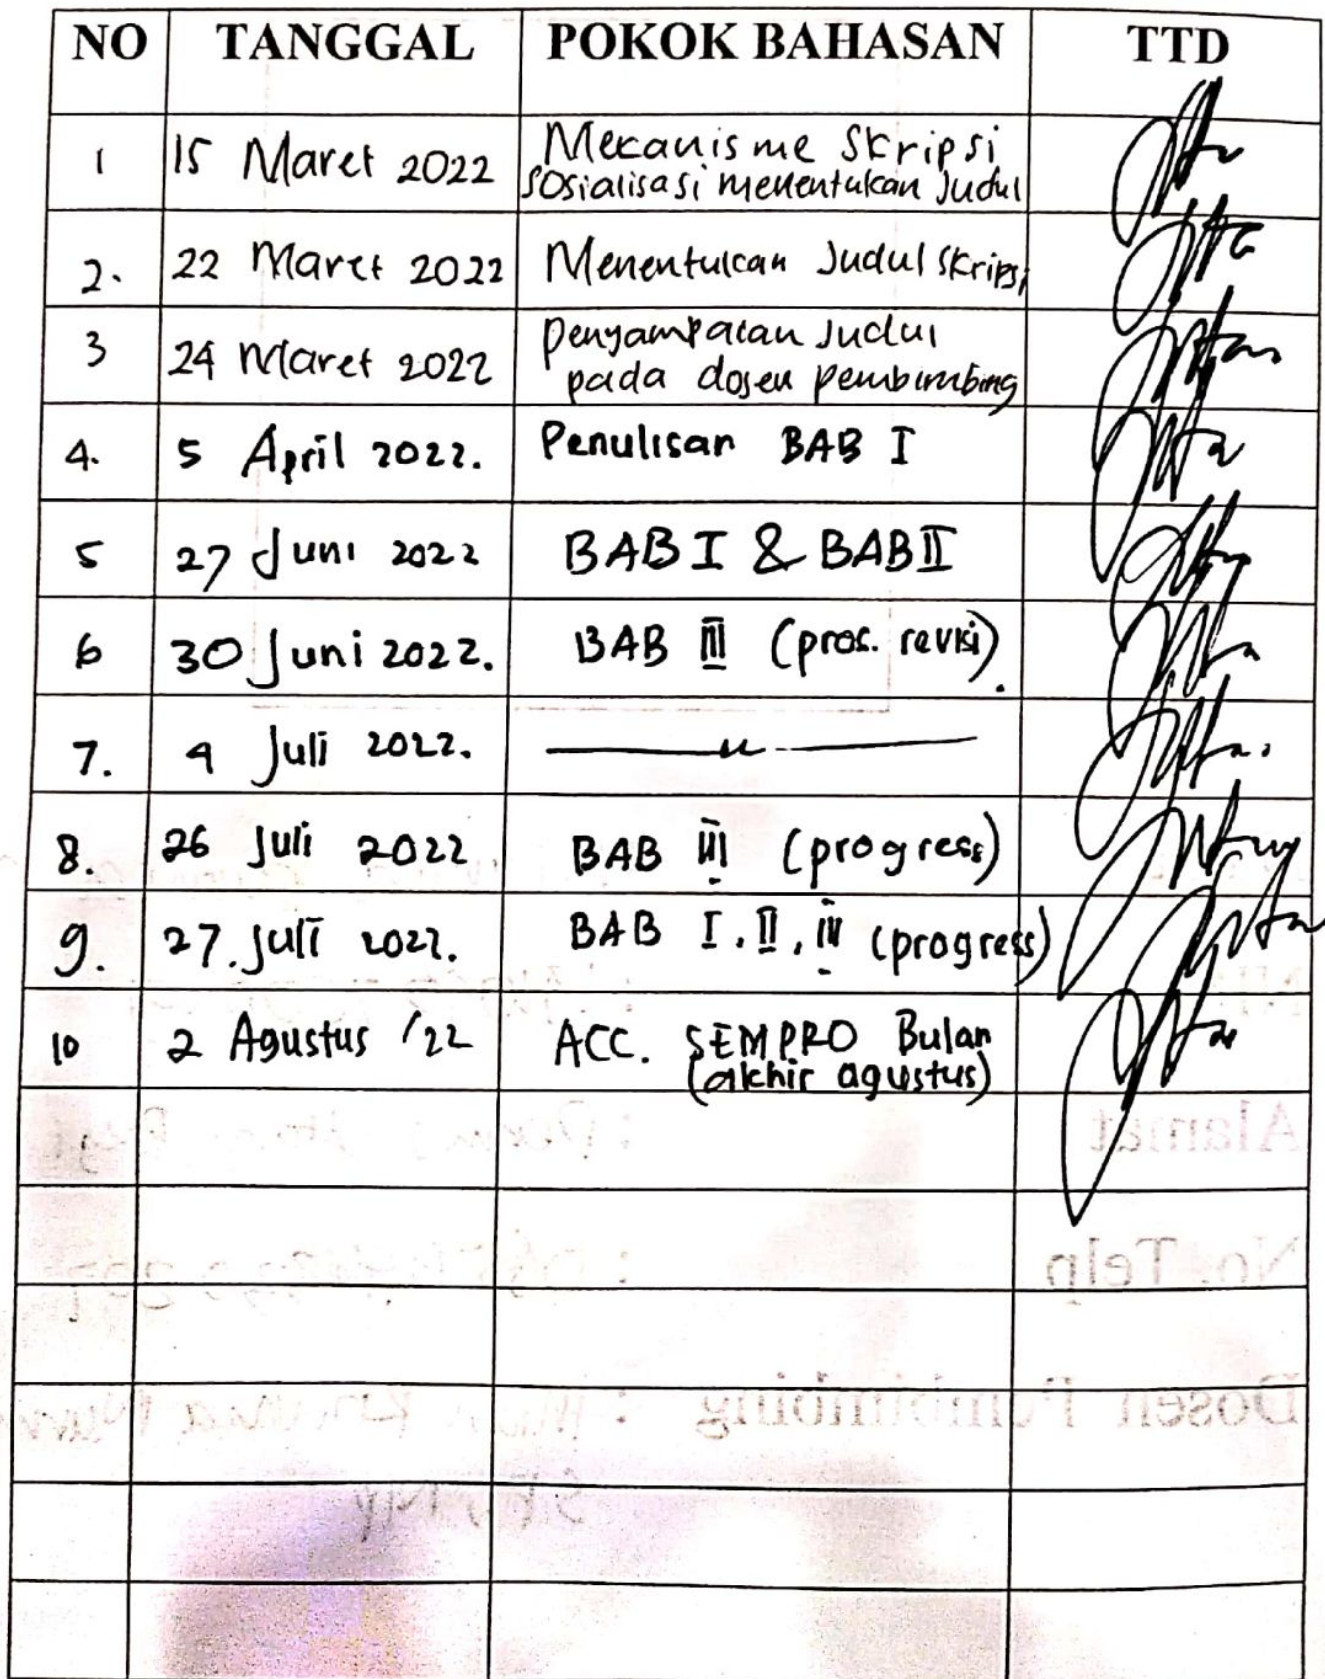 NO TANGGAL POKOK BAHASAN TTD
1 15 Maret 2022 Mekanisme Skripsi
sosialisasi menentukan Judul
2. 22 Maret 2022 Menentukan Judul Skripsi
3 24 Maret 2022 Penyampaian Judul
pada dosen pembimbing
4. 5 April 2022. Penulisan BAB I
5 27 Juni 2022 BAB I & BAB II
6 30 Juni 2022. BAB III (pros. revisi).
7. 4 Juli 2022. —— " ——
8. 26 Juli 2022 BAB III (progress)
9. 27. Juli 2022. BAB I, II, III (progress)
10 2 Agustus '22 ACC. SEMPRO Bulan
(akhir agustus)
Alamat :
No. Telp :
Dosen Pembimbing :